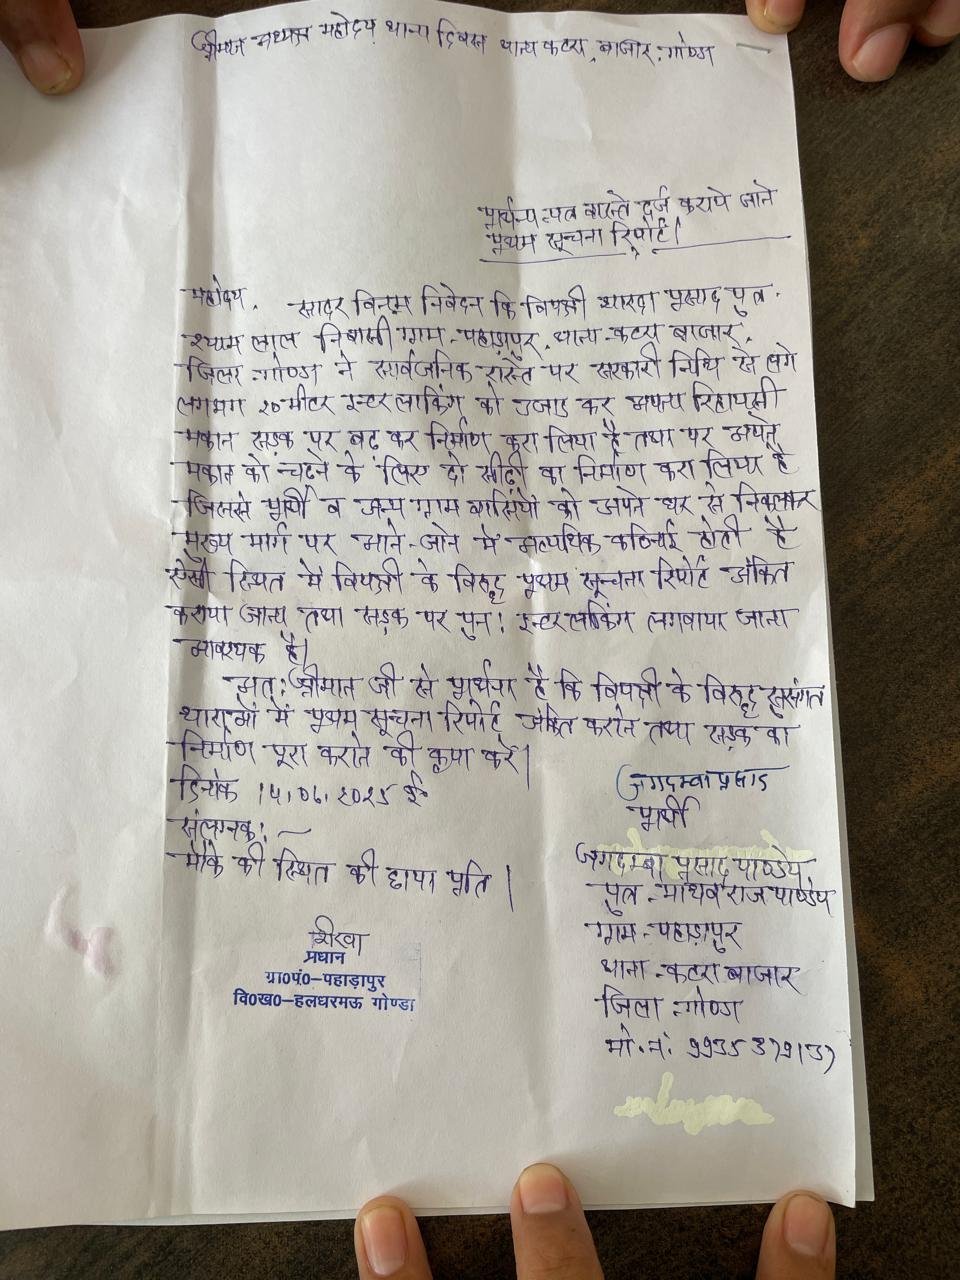 श्रीमान अध्यक्ष महोदय थाना दिवस थाना कटरा बाजार, गोण्डा
प्रार्थना-पत्र वास्ते दर्ज कराये जाने
प्रथम सूचना रिपोर्ट।
महोदय,
सादर विनम्र निवेदन कि विपक्षी शारदा प्रसाद पुत्र
श्याम लाल निवासी ग्राम-पहाड़ापुर, थाना-कटरा बाजार,
जिला-गोण्डा ने सार्वजनिक रास्ते पर सरकारी निधि से लगे
लगभग २० मीटर इन्टरलाकिंग को उजाड़ कर अपना रिहायसी
मकान सड़क पर बढ़ कर निर्माण करा लिया है तथा पर अपने
मकान को चढ़ने के लिए दो सीढ़ी का निर्माण करा लिया है
जिससे प्रार्थी व अन्य ग्राम वासियों को अपने घर से निकलकर
मुख्य मार्ग पर आने-जाने में अत्यधिक कठिनाई होती है
ऐसी स्थित में विपक्षी के विरुद्ध प्रथम सूचना रिपोर्ट अंकित
कराया जाना तथा सड़क पर पुनः इन्टरलाकिंग लगवाया जाना
आवश्यक है।
अतः श्रीमान जी से प्रार्थना है कि विपक्षी के विरुद्ध सुसंगत
धाराओं में प्रथम सूचना रिपोर्ट अंकित कराने तथा सड़क का
निर्माण पूरा कराने की कृपा करें।
दिनांक 14.06.2025 ई०
जगदम्बा प्रसाद
प्रार्थी
संलग्नक:
मौके की स्थित की छाया प्रति।
जगदम्बा प्रसाद पाण्डेय
पुत्र-माधव राज पाण्डेय
ग्राम-पहाड़ापुर
थाना-कटरा बाजार
जिला-गोण्डा
मो.नं. 9935379137
प्रधान
ग्रा०पं०-पहाड़ापुर
वि०ख०-हलधरमऊ गोण्डा